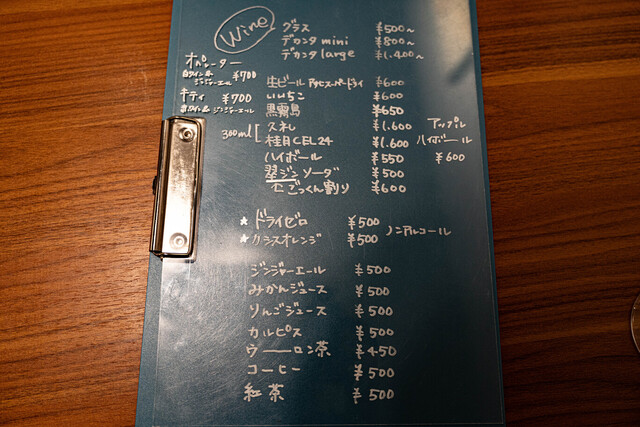 Wine
グラス ¥500~
デカンタ mini ¥800~
デカンタ large ¥1,400~
オペレーター ¥700
白ワイン & ジンジャーエール
キティ ¥700
赤ワイン & ジンジャエール
生ビール アサヒスーパードライ ¥600
いいちこ ¥600
黒霧島 ¥650
300ml [ 久礼 ¥1,600
桂月CEL24 ¥1,600
ハイボール ¥550
翠ジンソーダ ¥500
〃 ごっくん割り ¥600
アップル
ハイボール
¥600
★ ドライゼロ ¥500
★ カシスオレンジ ¥500
ノンアルコール
ジンジャーエール ¥500
みかんジュース ¥500
りんごジュース ¥500
カルピス ¥500
ウーロン茶 ¥450
コーヒー ¥500
紅茶 ¥500